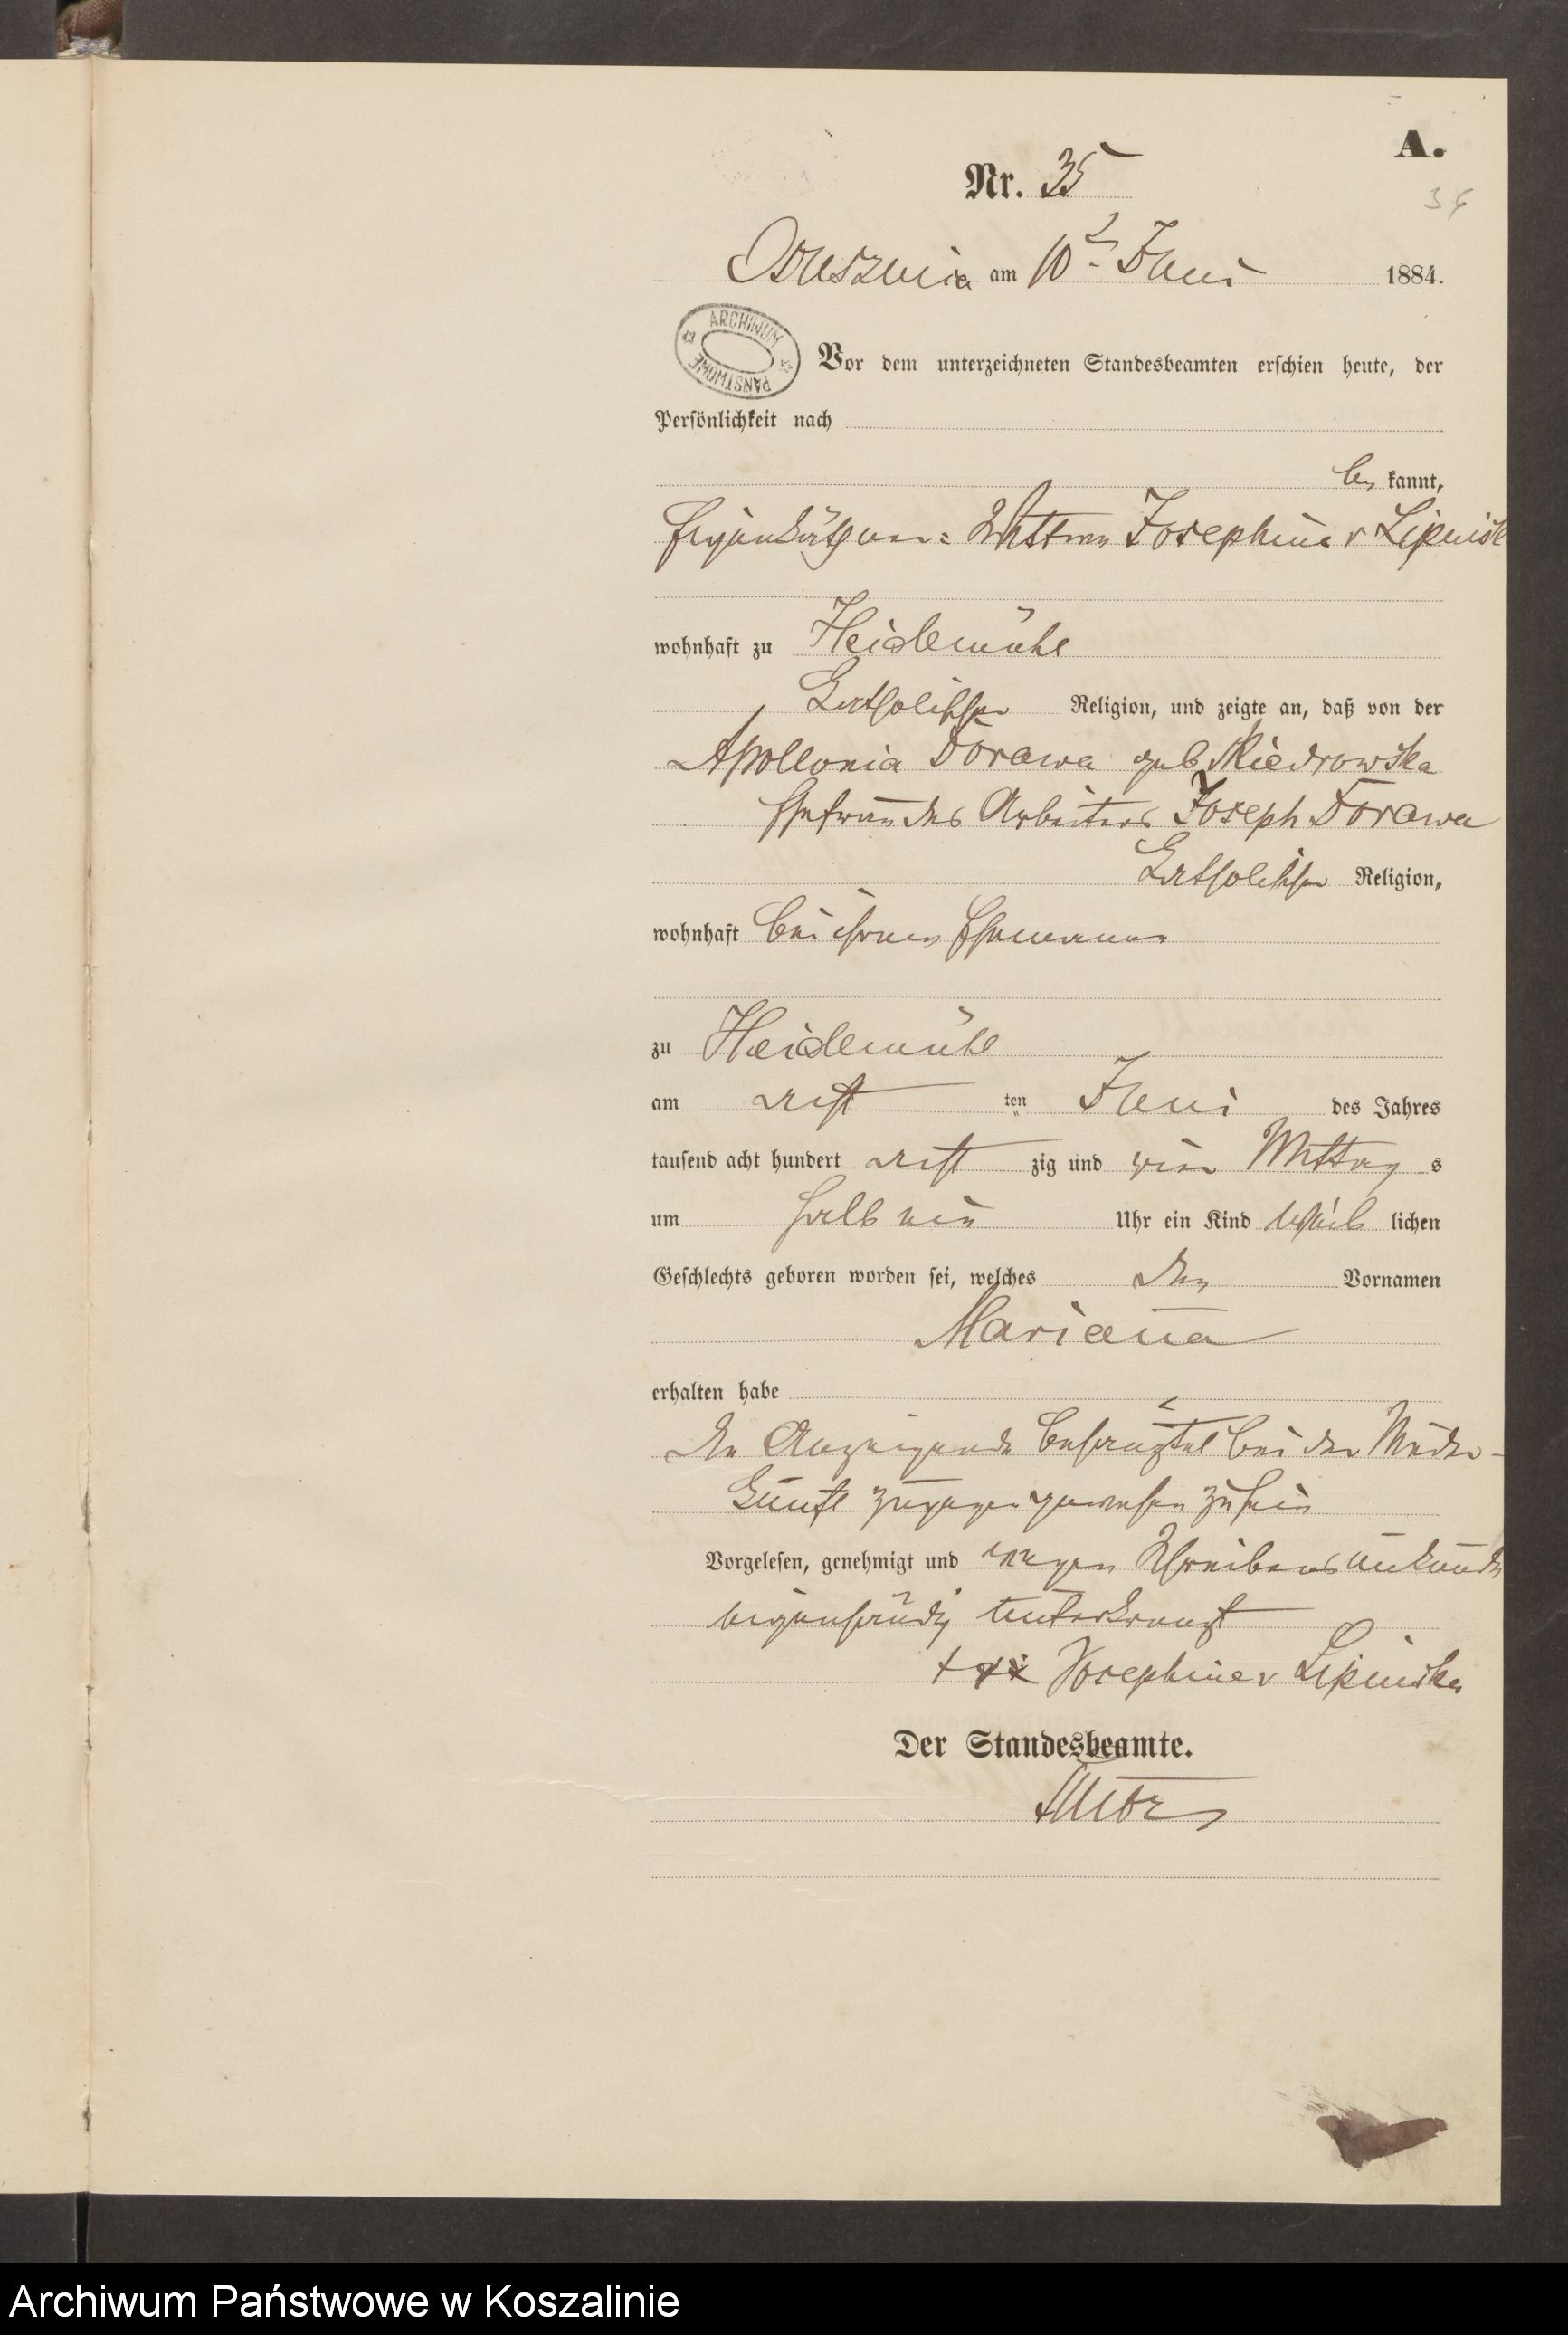 A.
Nr. 35
36
Osusznica am 10t Juni 1884.
ARCHIWUM PAŃSTWOWE
Vor dem unterzeichneten Standesbeamten erschien heute, der
Persönlichkeit nach
be kannt,
Eigenkäthner: Wittwe Josephine v Lipinsk
wohnhaft zu Heidemühl
katholischer Religion, und zeigte an, daß von der
Apollonia Dorawa geb Kiedrowska
Ehefrau des Arbeiters Joseph Dorawa
katholischer Religion,
wohnhaft bei ihrem Ehemanne
zu Heidemühl
am acht ten Juni des Jahres
tausend acht hundert acht zig und vier Mittag s
um halb ein Uhr ein Kind weib lichen
Geschlechts geboren worden sei, welches den Vornamen
Mariana
erhalten habe
Die Anzeigende bei der Nieder-
kunft zugegen gewesen zu sein
Vorgelesen, genehmigt und wegen Schreibensunkunde
eigenhändig unterkreuzt
+++ Josephine v Lipinska
Der Standesbeamte.